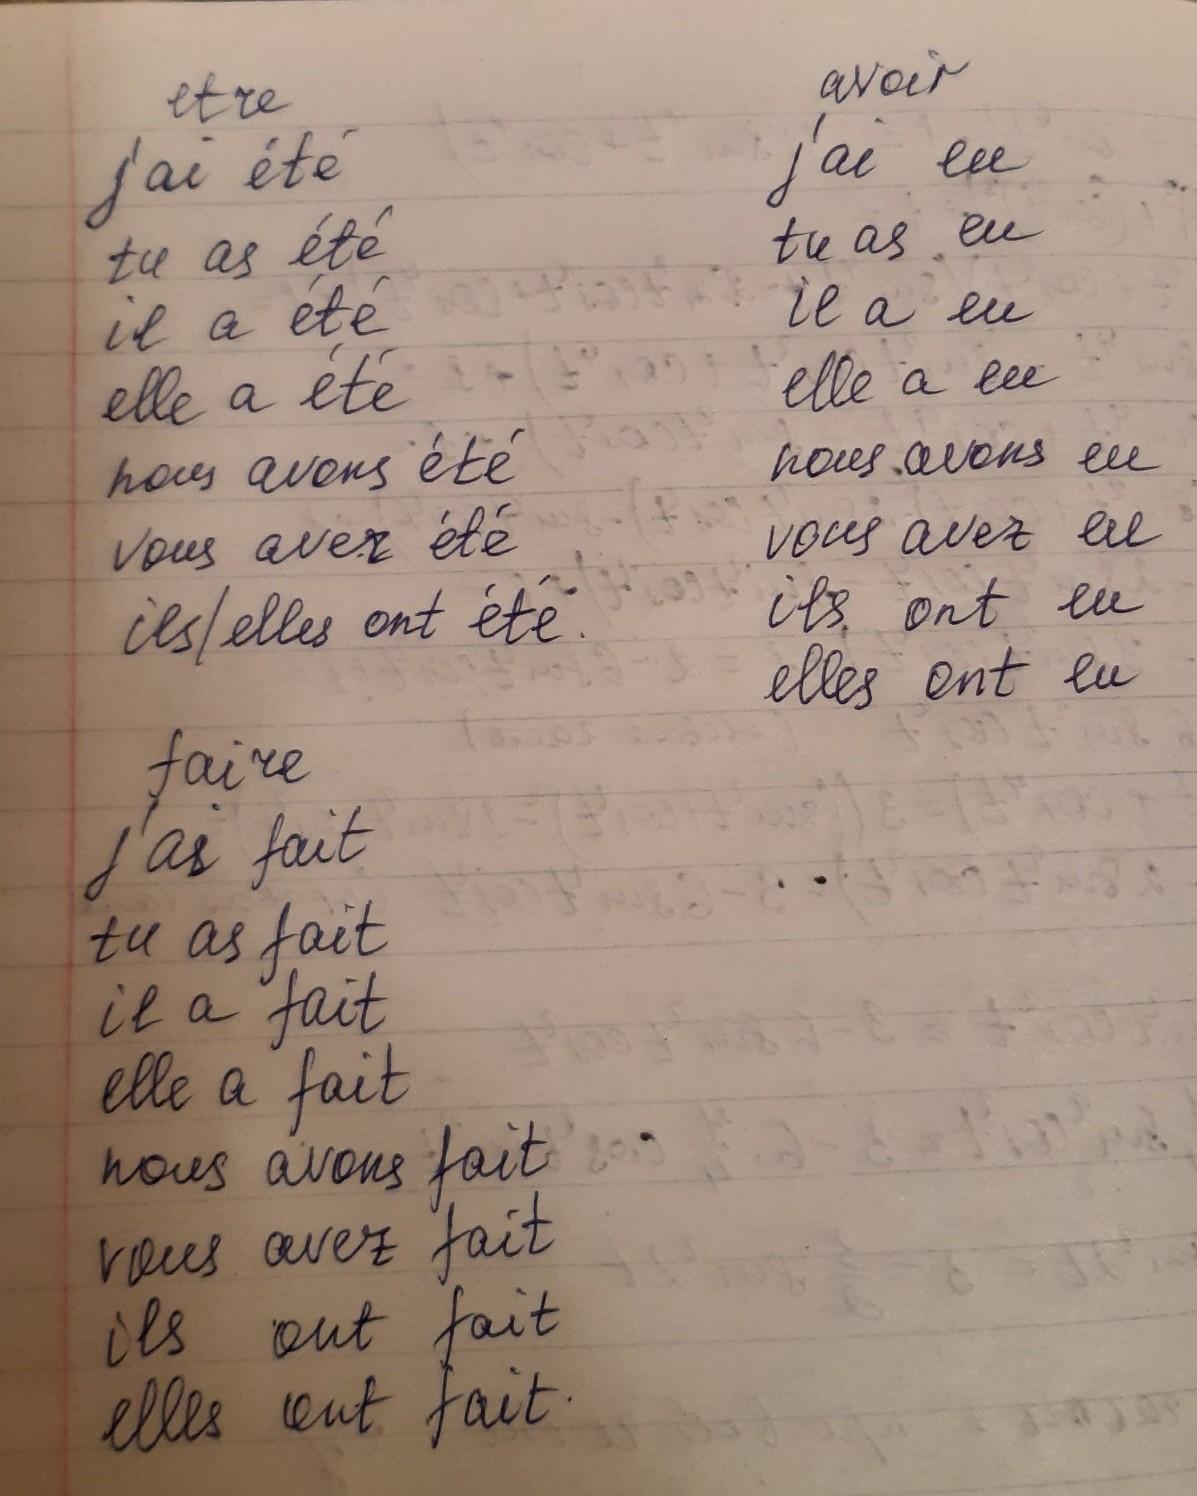 etre
j'ai été
tu as été
il a été
elle a été
nous avons été
vous avez été
ils/elles ont été.
avoir
j'ai eu
tu as eu
il a eu
elle a eu
nous avons eu
vous avez eu
ils ont eu
elles ont eu
faire
j'ai fait
tu as fait
il a fait
elle a fait
nous avons fait
vous avez fait
ils ont fait
elles ont fait.